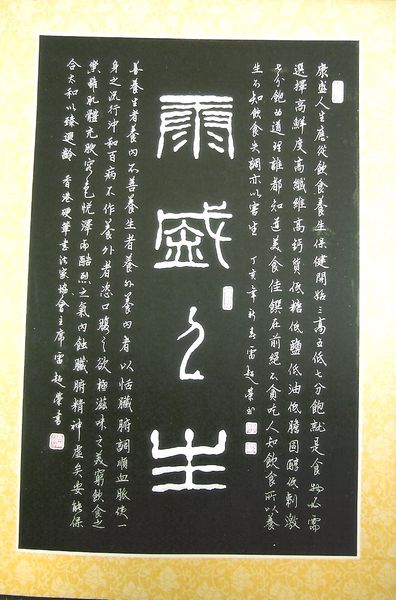 康盛人生應從飲食養生保健開始三高五低七分飽就是食物必需
選擇高鮮度高纖維高鈣質低糖低鹽低油低膽固醇低刺激
七分飽的道理誰都知道美食佳饌在前絕不貪吃人知飲食所以養
生不知飲食失調亦以害生 丁亥年新春雷超榮書
康盛人生
善養生者養內不善養生者養外養內者以恬臟腑調順血脈使一
身之流行沖和百病不作養外者恣口腹之欲極滋味之美窮飲食之
樂雖肌體充腴容色悅澤而酷烈之氣內蝕臟腑精神虛矣安能保
合太和以臻遐齡 香港硬筆書法家協會主席雷超榮書